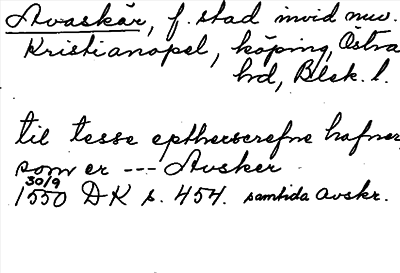 Avaskär, f. stad invid nuv.
Kristianopel, köping, Östra
hd, Blek. l.
til tesse eptherscrefne hafner,
som er --- Avsker
30/9
1550 DK s. 454. samtida avskr.